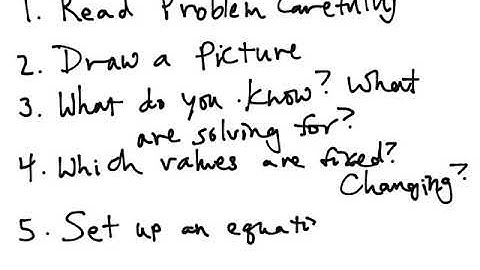 1. Read Problem Carefully
2. Draw a Picture
3. What do you know? What
are solving for?
4. Which values are fixed?
Changing?
5. Set up an equati